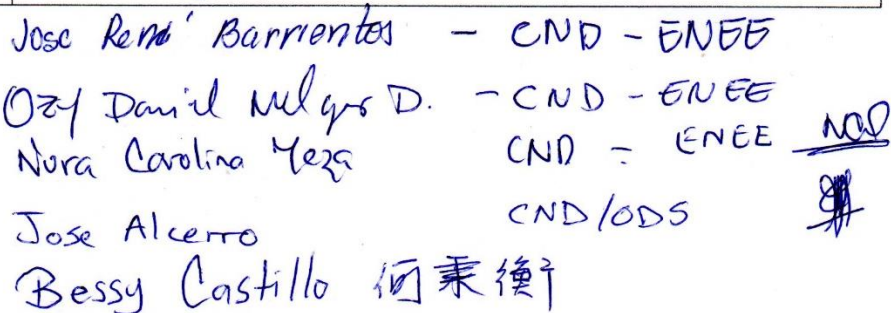 Jose René Barrientos - CND - ENEE
Ozy Daniel Melgar D. - CND - ENEE
Nora Carolina Meza CND - ENEE
Jose Alcerro CND/ODS
Bessy Castillo 何秉衡